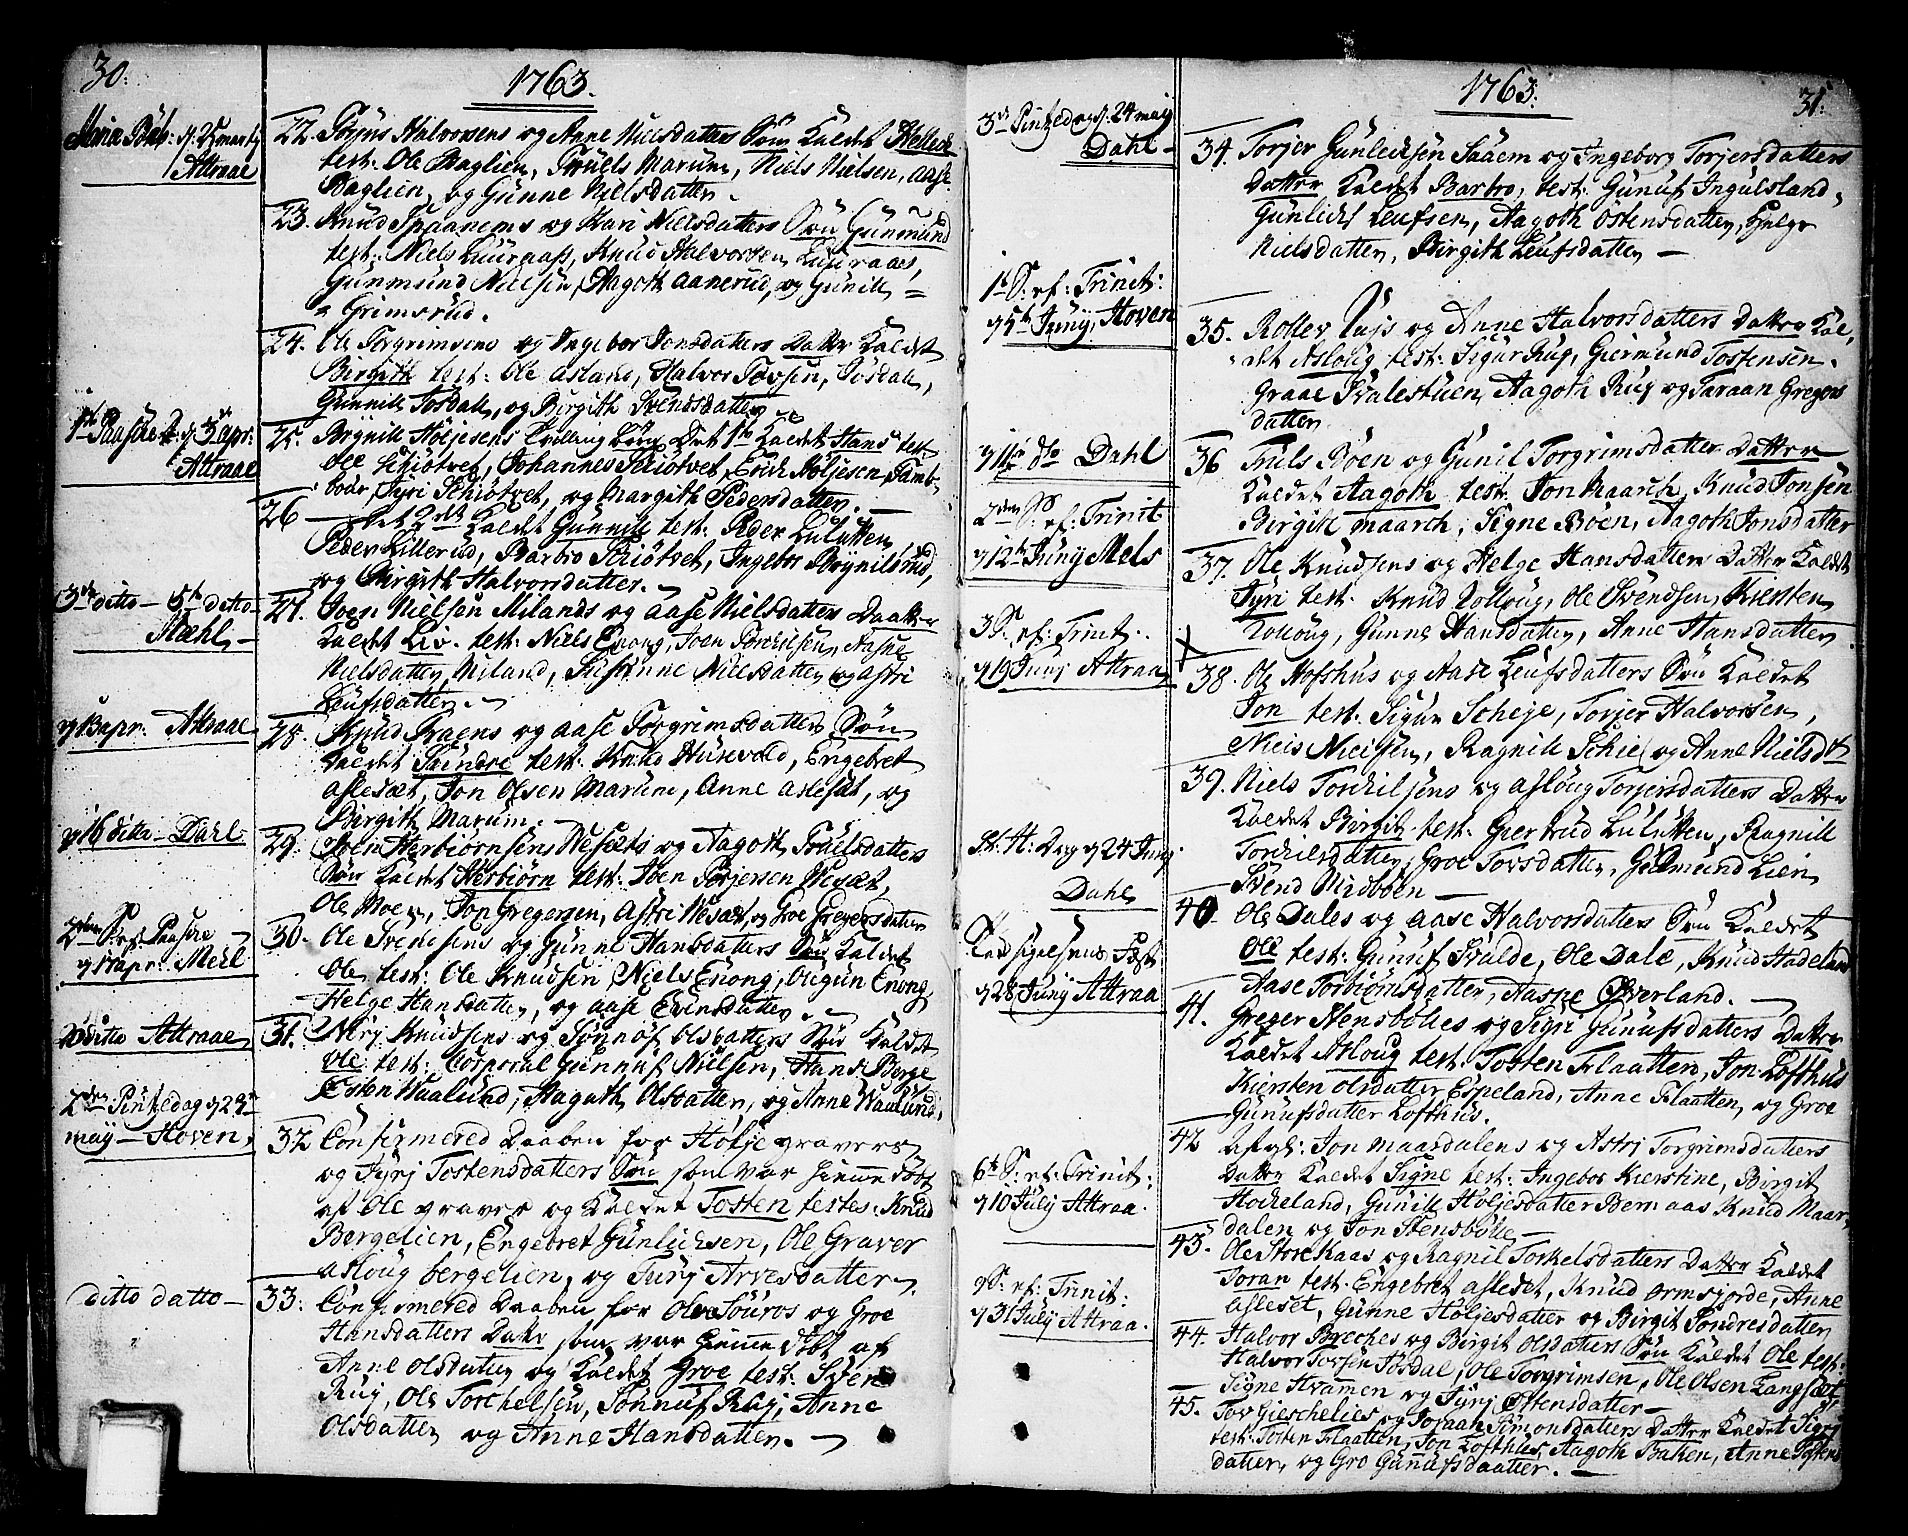 30.
1763.
Mariæ Bób: d. 25 marty
Attraae
22. Torjus Halvorsens og Anne Nielsdatters Søn Kaldet
test: Ole Baglien, Truels Marum, Niels Nielsen, Aase
Baglien, og Gunne Nielsdatter.
23. Knud Spaanems og Kari Nielsdatters Søn Gunmund
test: Niels Luuraaß, Knud Halvorsen Luuraaes,
Gunmund Nielsen, Aagoth Aanerud, og Gunill
Grimsrud.
24. Ole Torgrimsens og Ingebor Jonsdatters Datter Kaldet
Birgith test: Ole Asland, Halvor Tovsen, Tosdall,
Gunnill Tosdall, og Birgith Svendsdatter
1ste Paaske d. 3 apr:
Attraae
25. Brynill Høljesens Tvilling børn Det 1ste Kaldet Hans test
Ole Schiøtvet, Johannes Schiøtvet, Erich Høljesen, Tamb-
bour, Jyri Schiøtvet, og Margith Pedersdatter.
26 — Det 2det Kaldet Gunnill test: Peder Lulutten
Peder Lillerud, Barbro Schiøtvet, Ingebor Brynilsrud,
og Birgith Halvorsdatter.
3die ditto — 5t ditto
Mæhl
27. Joen Nielsen Milands og Aase Nielsdatters Daatter
Kaldet Liv. test: Niels Enong, Joen Torchilsen, Aasne
Nielsdatter Miland, Susanne Nielsdatter og Astri
Leufsdatter.
d 13 apr. Attraae
28. Knud Traens og Aase Torgrimsdatters Søn
Kaldet Søndre test: Knud Husevold, Engebret
Aslesæt, Jon Olsen Marum, Anne Aslesæt, og
Birgith Marum.
d 16 ditto — Dahl
29. Joen Herbiørnsens Wesæts og Aagoth Truelsdatters
Søn Kaldet Herbiørn test: Joen Torjersen Wesæt,
Ole Moen, Jon Gregersen, Astri Wesæt, og Groe Gregersdatter
2den S. ef: Paaske
d 17 apr: Meel
30. Ole Svendsens og Gunne Hansdatters Søn Kaldet
Ole test: Ole Knudsen, Niels Enong, Olegun Enong,
Helge Hansdatter, og Aase Evensdatter.
ditto Attraae
31. Knudsens og Sønnof Olsdatters Søn Kaldet
Ole test: Corporal Gunnuf Nielsen, Hans Berge
Esten Waalund, Aagoth Olsdatter, og Anne Waalund.
2den Pintzedag d 23
may — Hoven
32 Confirmered Daaben for Hølje gravers
og Jyrj Tostensdatters Søn som var hiemme døbt
af Ole graver og Kaldet Tosten testes: Knud
Bergelien, Engebret Gunlichsen, Ole Graver
Asloug bergelien, og Turj Arvesdatter.
ditto datto —
33. Confirmered Daaben for Ole Souros og Groe
Hansdatters Datter som var hiemme døbt af
Anne Olsdatter og Kaldet Groe test: Sven
Rug, Ole Torchelsen, Sønnuf Rug, Anne
Olsdatter og Anne Hansdatter.
31.
1763.
3de Pintzedag d. 24 maij
Dahl
34. Torjer Gunlechsen Saaem og Ingeborg Torjersdatters
Datter Kaldet Barbro, test: Gunuf Ingulsland
Gunlich Leufsen, Aagoth Østensdatter, Helge
Nielsdatter, Birgith Leufsdatter —
1te S: ef: Trinit:
d 5t Juny, Hoven
35. Rollev og Anne Halvorsdatters Datter Kal-
det Asloug test: Sigur Rug, Giermund Tostensen
Graae Svalestuen, Aagoth Rug og Taraan Gregers
datter
d 11te do Dahl
36 Truls Bøen og Gunil Torgrimsdatter Datter
Kaldet Aagoth test: Jon Maarch, Knud Jonsen
Birgit Maarch, Signe Bøen, Aagoth Jonsdatter
2den S: ef: Trinit:
d 12te Juny Mels
37. Ole Knudsens og Helge Hansdatters Datter Kaldet
Jyri test: Knud Tolloug, Ole Svendsen, Kiersten
Tolloug, Gunne Hansdatter, Anne Hansdatter
3 S. ef: Trinit:
d 19 Junj Attraa
38. Ole Hofshus og Aase Leufsdatters Søn Kaldet
Jon test: Sigur Scheje, Torjer Halvorsen,
Niels Nielsen, Ragnill Schie og Anne Nielsd:
39. Niels Torchilsens og Asloug Torjersdatters Datter
Kaldet Birgit test: Giertrud Lulutten, Ragnill
Torchelsdatter, Groe Tovsdatter, Gudmund Lien
Svend Midbøen —
St: H: Dag d 24 Junj
Dahl
40. Ole Dales og Aase Halvorsdatters Søn Kaldet
Ole test: Gunuf Svalde, Ole Dale, Knud Hadeland
Aase Torbiørnsdatter, Aasne Øverland.
Festj
d 28 Juny Attraa
41. Greger Stensbølles og Sigri Gunufsdatters Datter
Kaldet Asloug test: Tosten Flaatten, Jon Lofthus
Kiersten Olsdatter Espeland, Anne Flaatten, og Groe
Gunufsdatter Lofthus.
42 Jon Maardalens og Astrj Torgrimsdatters
Datter Kaldet Signe test: Ingebor Kierstine, Birgit
Hocheland, Gunill Høljesdatter Bernaas Knud Maar-
dalen og Jon Stensbølle —
6te S: ef: Trinit:
d 10 July Attraa.
43. Ole Store Kaas og Ragnil Torkelsdatters Datter Kaldet
Toran test: Engebret Asleset, Knud Ormsjorde, Anne
Asleset, Gunne Høljesdatter og Birgit Søndresdatter
9 S: ef: Trinit:
d 31 July Attraa.
44. Halvor Breches og Birgit Olsdatters Søn Kaldet Ole test:
Halvor Tovsen Tosdal, Ole Torgrimsen, Ole Olsen Langsæt
Signe Hvammen og Jyrj Ostensdatter —
45. Tov Gieschelies og Joraan Simonsdatters Datter Kaldet Sigrj
test: Tosten Flaatten, Jon Lofthus, Aagoth Bakken, Anne Tostens
datter, og Gro Gunufsdaatter. —